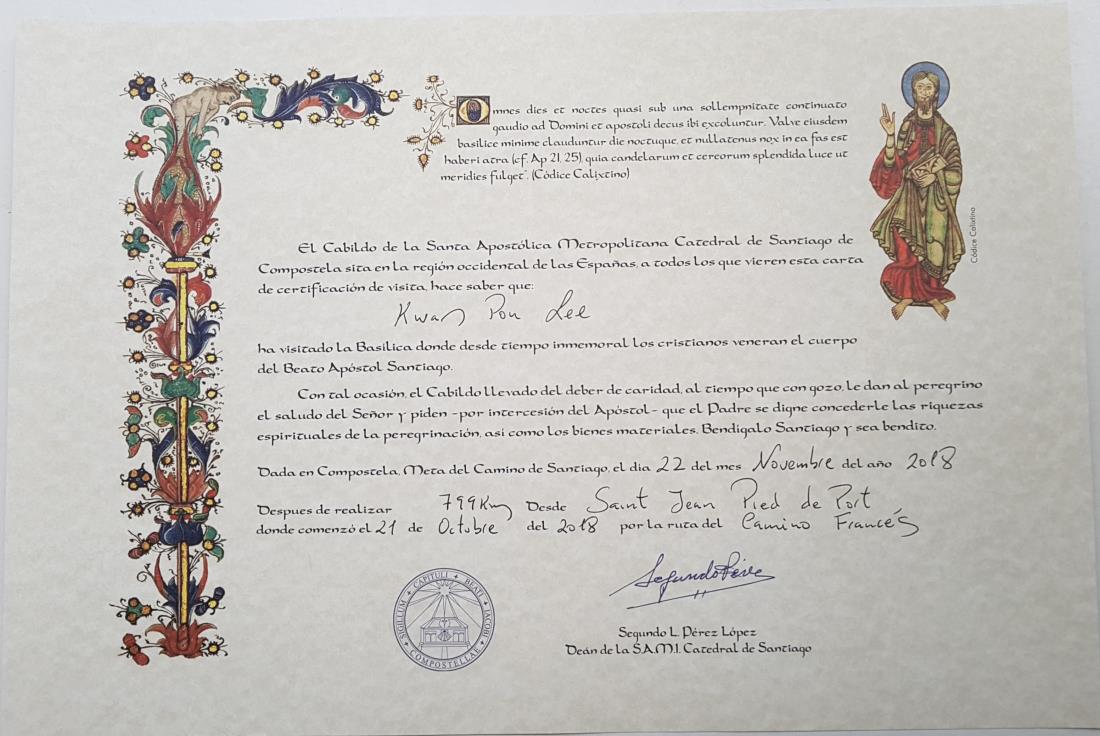 Omnes dies et noctes quasi sub una sollempnitate continuato
gaudio ad Domini et apostoli decus ibi excoluntur. Valve eiusdem
basilice minime clauduntur die noctuque, et nullatenus nox in ea fas est
haberi atra (cf. Ap 21, 25), quia candelarum et cereorum splendida luce ut
meridies fulget". (Códice Calixtino)
Códice Calixtino
El Cabildo de la Santa Apostólica Metropolitana Catedral de Santiago de
Compostela sita en la región occidental de las Españas, a todos los que vieren esta carta
de certificación de visita, hace saber que:
Kwan Pou Lee
ha visitado la Basílica donde desde tiempo inmemoral los cristianos veneran el cuerpo
del Beato Apóstol Santiago.
Con tal ocasión, el Cabildo llevado del deber de caridad, al tiempo que con gozo, le dan al peregrino
el saludo del Señor y piden -por intercesión del Apóstol- que el Padre se digne concederle las riquezas
espirituales de la peregrinación, asi como los bienes materiales. Bendigalo Santiago y sea bendito.
Dada en Compostela, Meta del Camino de Santiago, el dia 22 del mes Novembre del año 2018
Despues de realizar 799Km Desde Saint Jean Pied de Port
donde comenzó el 21 de Octubre del 2018 por la ruta del Camino Francés
SIGILLUM CAPITULI BEATI JACOBI COMPOSTELLAE
Segundo Pérez
Segundo L. Pérez López
Deán de la S.A.M.I. Catedral de Santiago